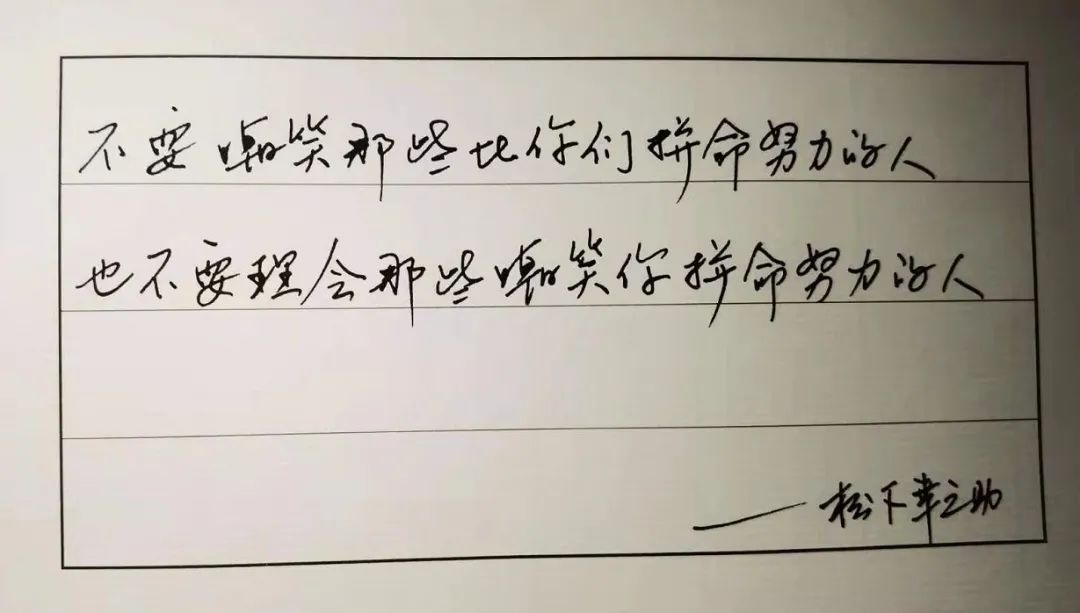 不要嘲笑那些比你们拼命努力的人
也不要理会那些嘲笑你拼命努力的人
——松下幸之助